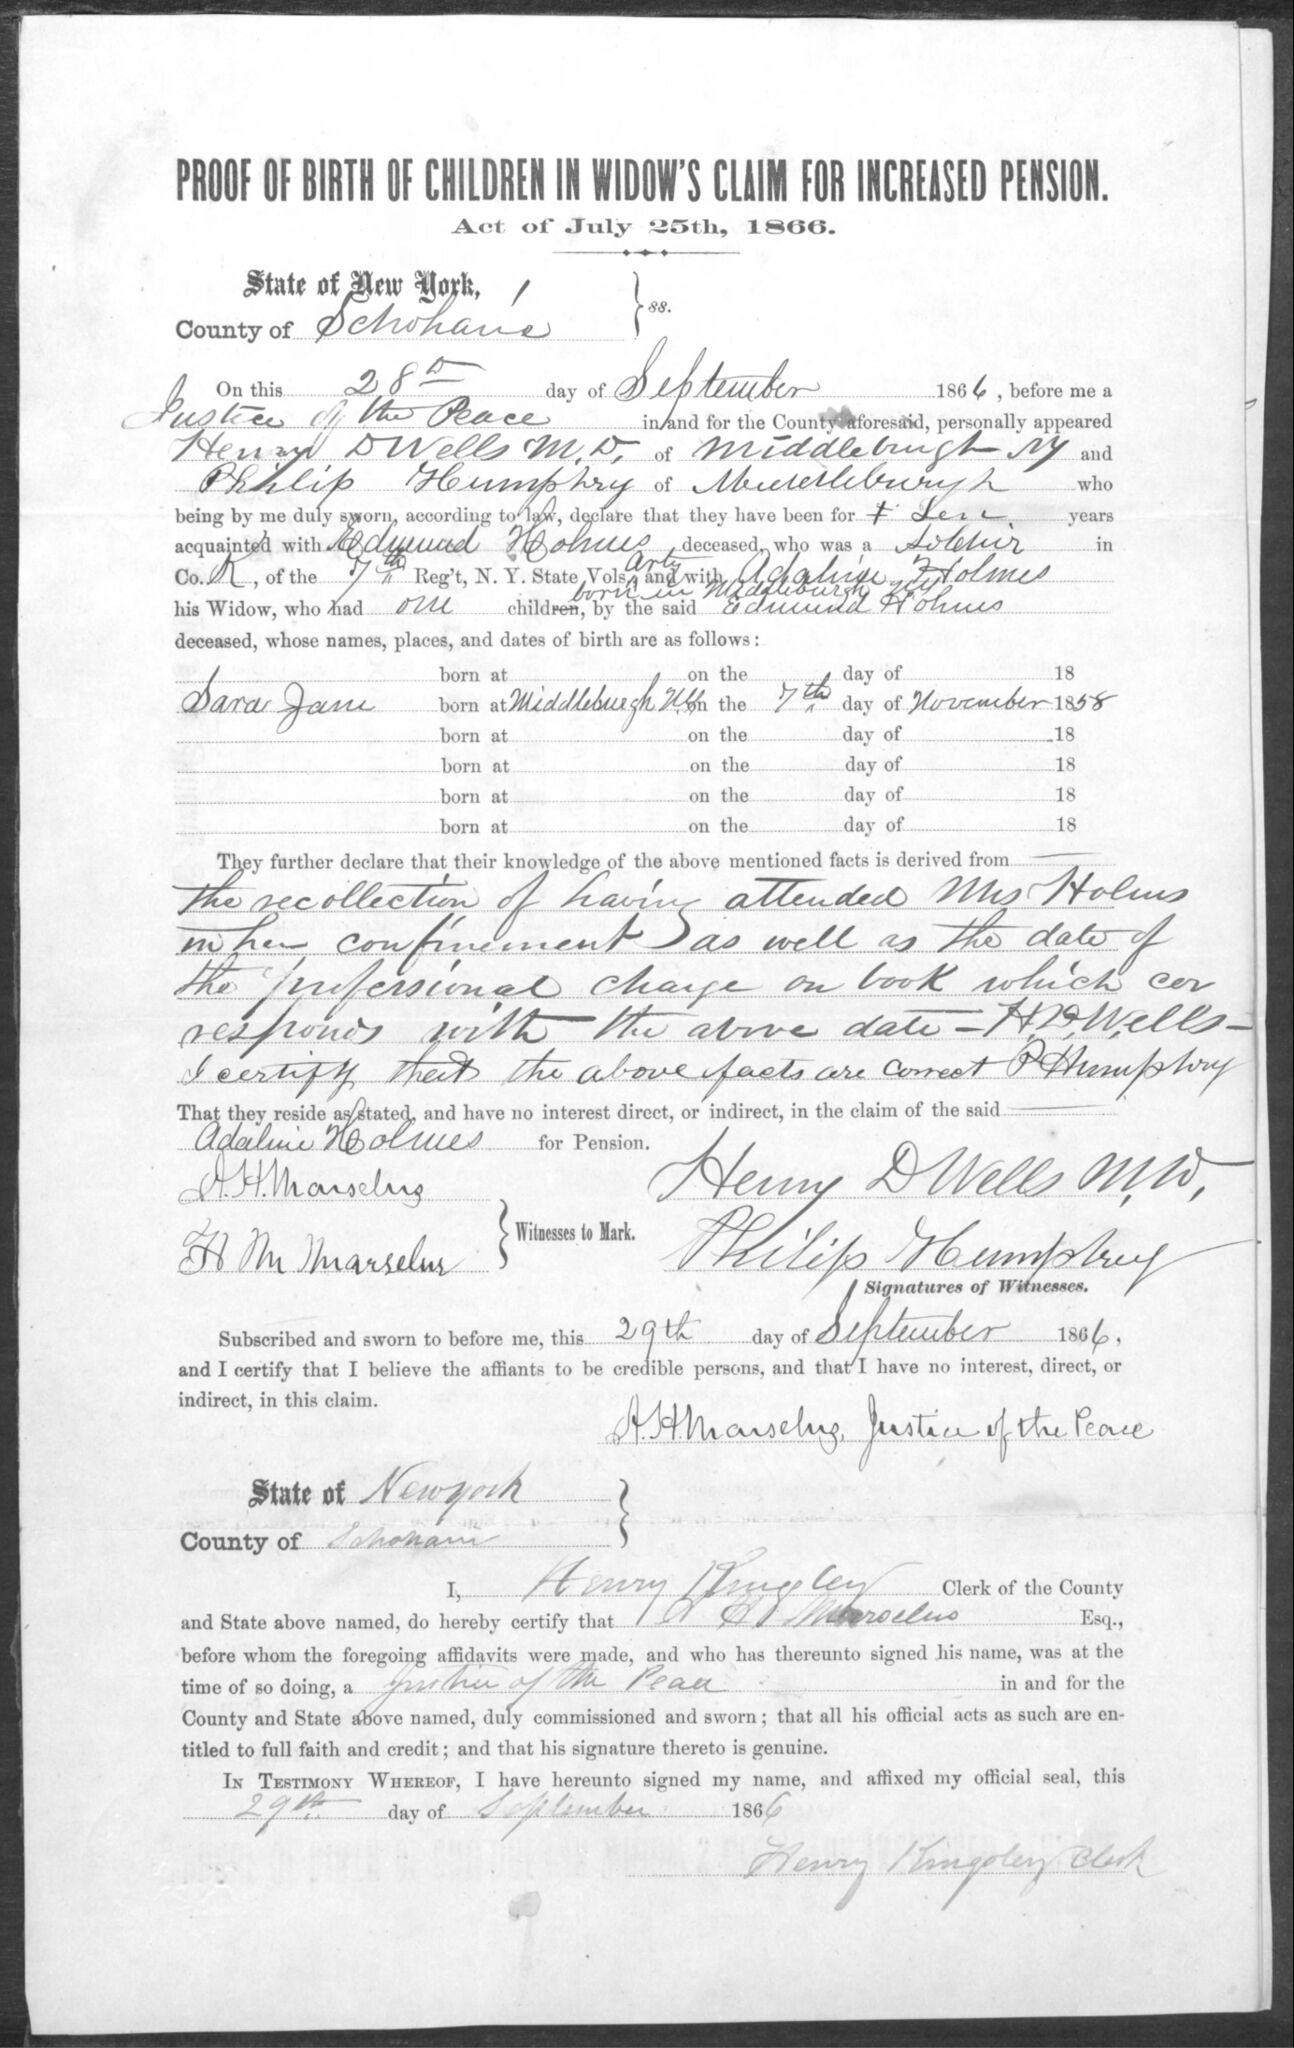 PROOF OF BIRTH OF CHILDREN IN WIDOW'S CLAIM FOR INCREASED PENSION.
Act of July 25th, 1866.
State of New York,
County of Schoharie } ss.
On this 28th day of September 1866, before me a
Justice of the Peace in and for the County aforesaid, personally appeared
Henry D Wells M.D. of Middleburgh NY and
Philip Humphry of Middleburgh who
being by me duly sworn, according to law, declare that they have been for + Ten years
acquainted with Edmund Holmes deceased, who was a soldier in
Co. K, of the 7th Reg't, N. Y. State Vols. Arty and with Adaline Holmes
his Widow, who had one children, born in Middleburgh NY by the said Edmund Holmes
deceased, whose names, places, and dates of birth are as follows:
born at on the day of 18
Sara Jane born at Middleburgh NY on the 7th day of November 1858
born at on the day of 18
born at on the day of 18
born at on the day of 18
born at on the day of 18
They further declare that their knowledge of the above mentioned facts is derived from
the recollection of having attended Mrs Holms
in her confinement as well as the date of
the professional charge on book which cor
responds with the above date - H.D. Wells -
I certify that the above facts are correct P Humphry
That they reside as stated, and have no interest direct, or indirect, in the claim of the said
Adaline Holmes for Pension.
A. H. Marselus Henry D Wells M.D.
H M Marselus } Witnesses to Mark. Philip Humphrey
Signatures of Witnesses.
Subscribed and sworn to before me, this 29th day of September 1866,
and I certify that I believe the affiants to be credible persons, and that I have no interest, direct, or
indirect, in this claim.
A. H. Marselus, Justice of the Peace
State of New york
County of Schoharie }
I, Henry Kingsley Clerk of the County
and State above named, do hereby certify that A H Marselus Esq.,
before whom the foregoing affidavits were made, and who has thereunto signed his name, was at the
time of so doing, a Justice of the Peace in and for the
County and State above named, duly commissioned and sworn; that all his official acts as such are en-
titled to full faith and credit; and that his signature thereto is genuine.
IN TESTIMONY WHEREOF, I have hereunto signed my name, and affixed my official seal, this
29th day of September 1866
Henry Kingsley Clerk